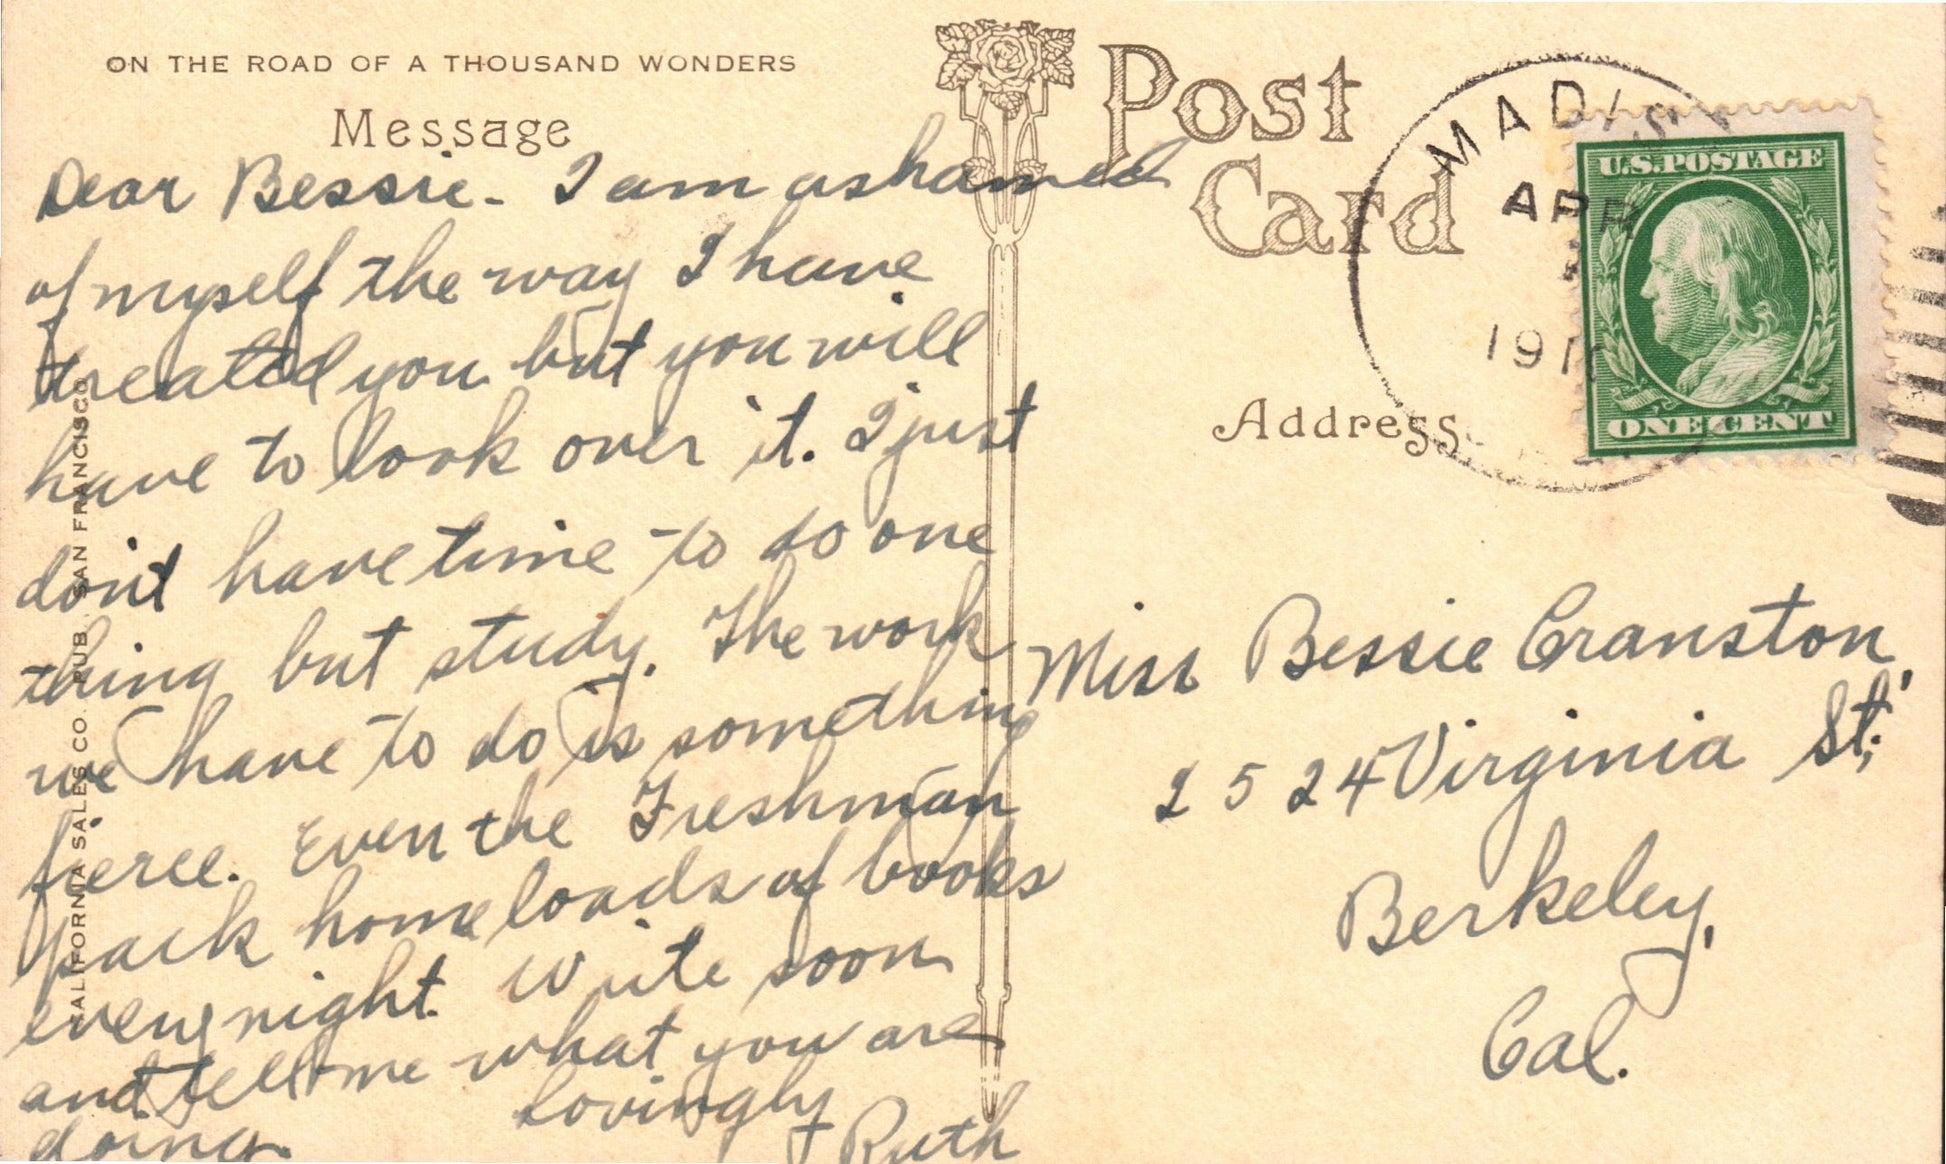 ON THE ROAD OF A THOUSAND WONDERS
Message
Dear Bessie - I am ashamed
of myself the way I have
treated you but you will
have to look over it. I just
don't have time to do one
thing but study. The work
we have to do is something
fierce. Even the Freshman
pack home loads of books
every night. Write soon
and tell me what you are
doing.
Lovingly
Ruth
CALIFORNIA SALES CO. PUB. SAN FRANCISCO
Post
Card
APR
U.S. POSTAGE
ONE CENT
Address
Miss Bessie Cranston,
2524 Virginia St.,
Berkeley,
Cal.